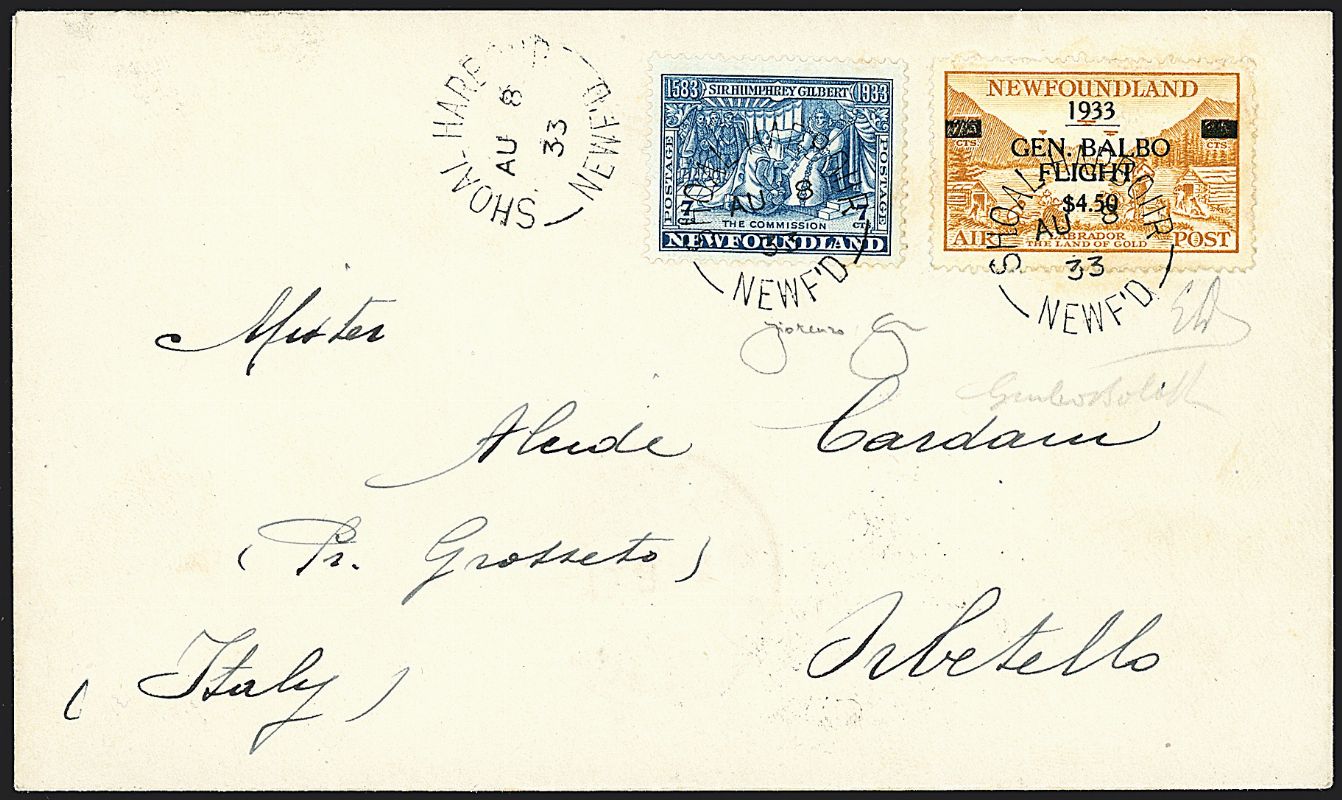 SHOAL HARBOUR
AU 8
33
NEWF'D
1583 SIR HUMPHREY GILBERT 1933
POSTAGE POSTAGE
7 7
CTS
THE COMMISSION
NEWFOUNDLAND
SHOAL HARBOUR
AU 8
33
NEWF'D
NEWFOUNDLAND
1933
75 75
CTS. CTS.
GEN. BALBO
FLIGHT
$4.50
LABRADOR
AIR THE LAND OF GOLD POST
SHOAL HARBOUR
AU 8
33
NEWF'D
Mister
Alcide Cardani
(Pr. Grosseto)
Orbetello
(Italy)